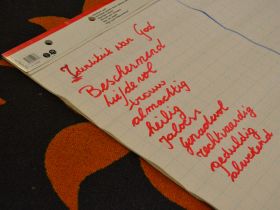 Jaloers van God
Beschermend
liefdevol
trouw
almachtig
heilig
Jaloers
genadevol
rechtvaardig
geduldig
alwetend